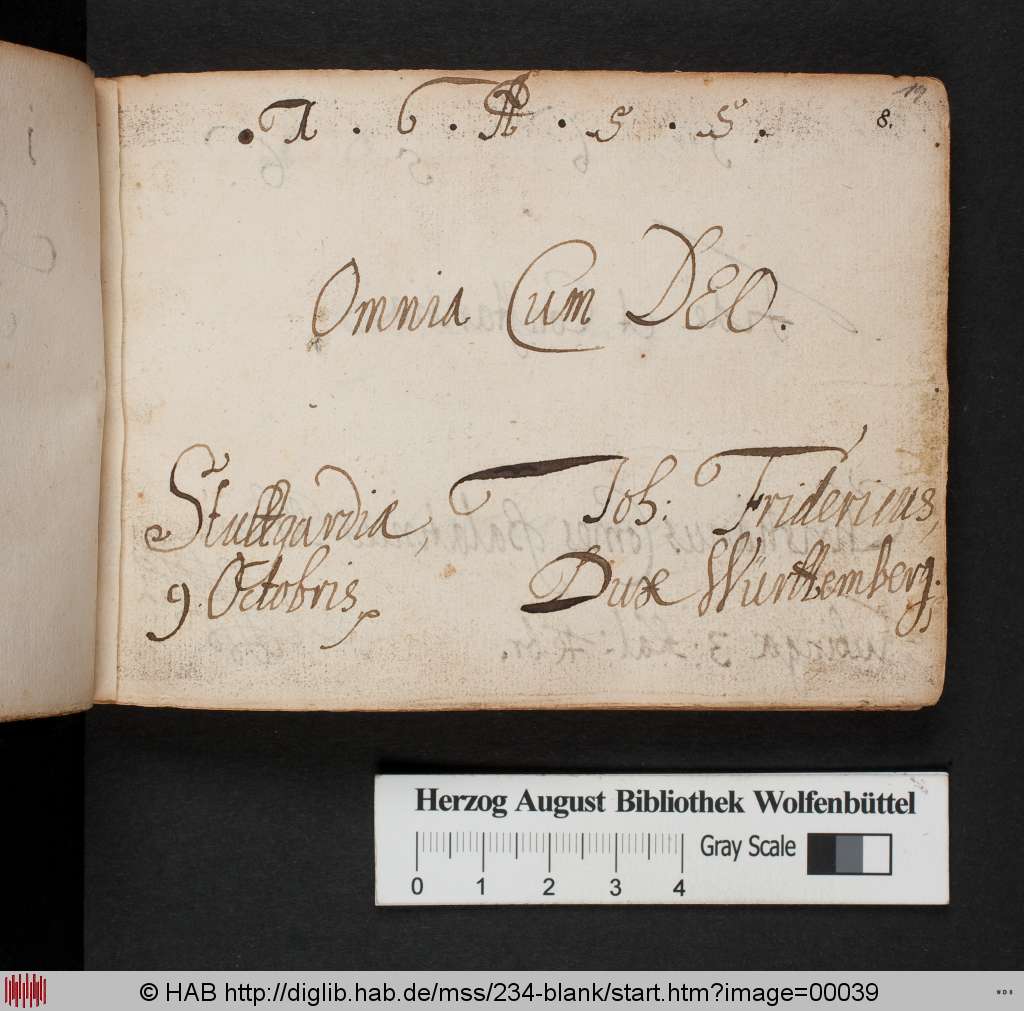 . 1 . 6 . A . 5 . 5 .
8.
Omnia Cum DEO.
Stuttgardiæ, Joh: Fridericus,
9 Octobris. Dux Württemberg.
Herzog August Bibliothek Wolfenbüttel
Gray Scale
0 1 2 3 4
© HAB http://diglib.hab.de/mss/234-blank/start.htm?image=00039